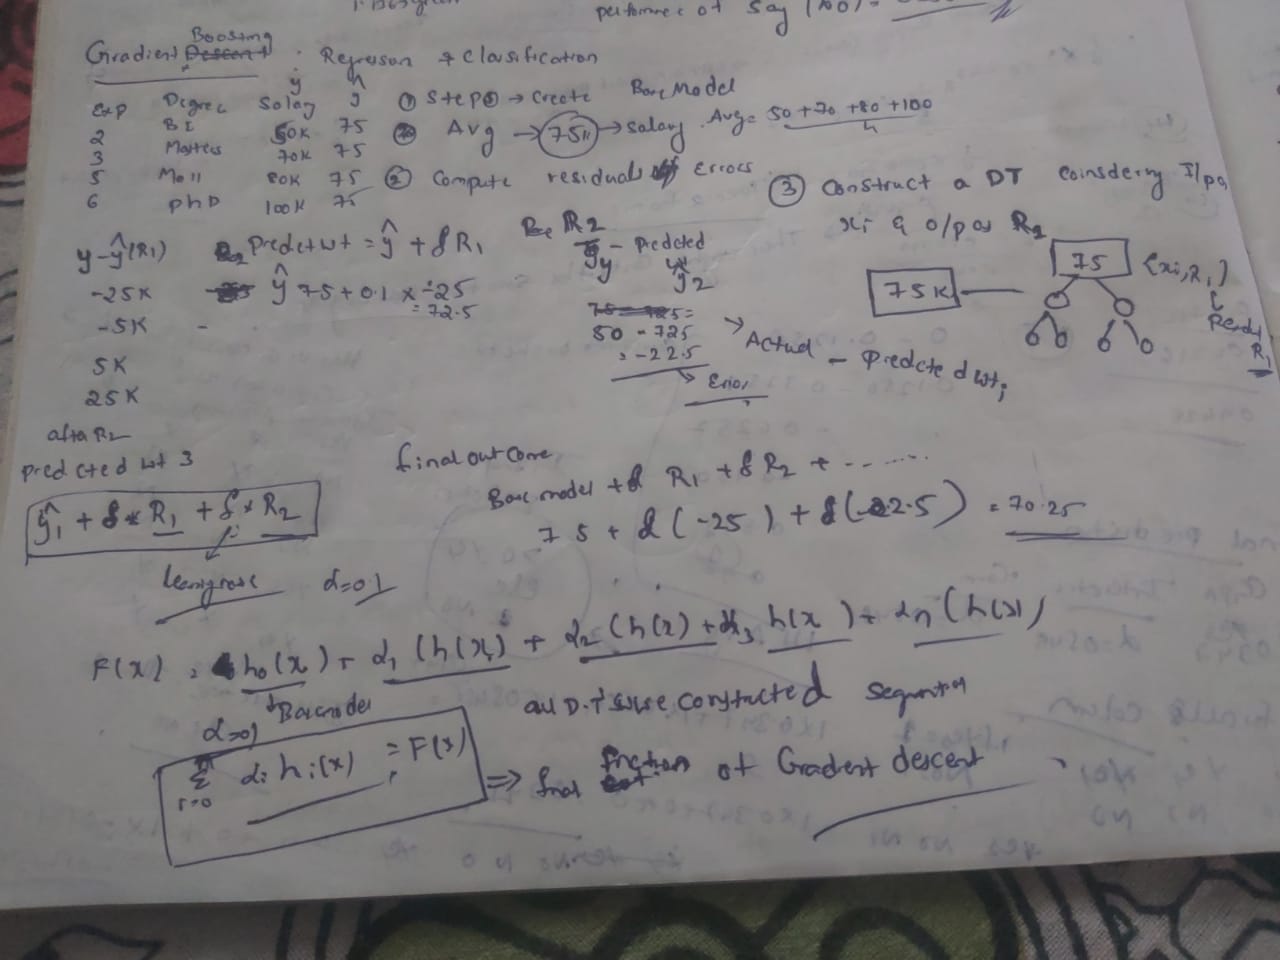 performance of Say (
Boosting
Gradient Descent : Regression & Classification
Exp Degree Salary y ŷ
2 BE 50K 75
3 Masters 70K 75
5 Mas 80K 75
6 phD 100K 75
① Step ① → Create Base Model
Avg → 75K → salary Avg = 50 + 70 + 80 + 100
4
② Compute residuals Errors
③ Construct a DT Coinsdering I/p as
xi & o/p as R2
75 {xi, R1}
75K
Residual
R1
y - ŷ (R1)
-25K
-5K
5K
25K
Predct wt = ŷ + α R1
ŷ 75 + 0.1 x -25
= 72.5
R2
y - Predcted
ŷ2
50 - 72.5
= -22.5
→ Error
→ Actual - Predcted wt;
after R2
predcted wt 3
ŷ1 + α * R1 + α * R2
learning rate α = 0.1
final outcome
Base model + α R1 + α R2 + ........
75 + α (-25) + α (-22.5) = 70.25
F(x) = h0(x) + α1 (h(x) + α2 (h(x) + α3 h(x) + αn (h(x)
Base model
all D.T's were constructed sequential
n
Σ αi hi(x) = F(x)
i=0
⇒ final function of Gradient descent